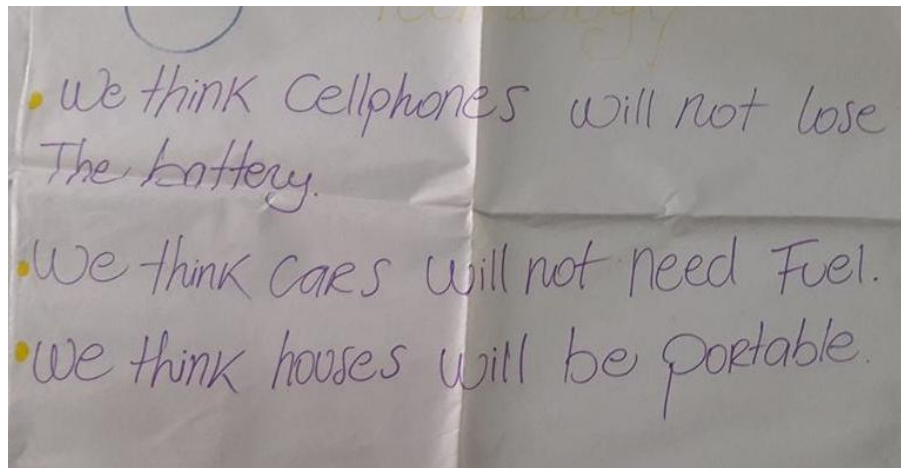 Technology
• We think Cellphones will not lose
The battery.
• We think CARS will not need Fuel.
• We think houses will be portable.